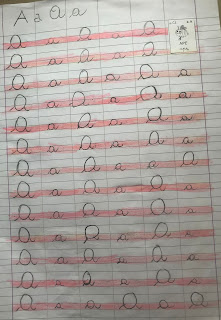 A a A a
A a A a A a
A a A a A a
A a A a A a
A a A a A a
A a A a A a
A a A a A a
A a A a A a
A a A a A a
A a A a A a
A a A a A a
A a A a A a
A a a A a